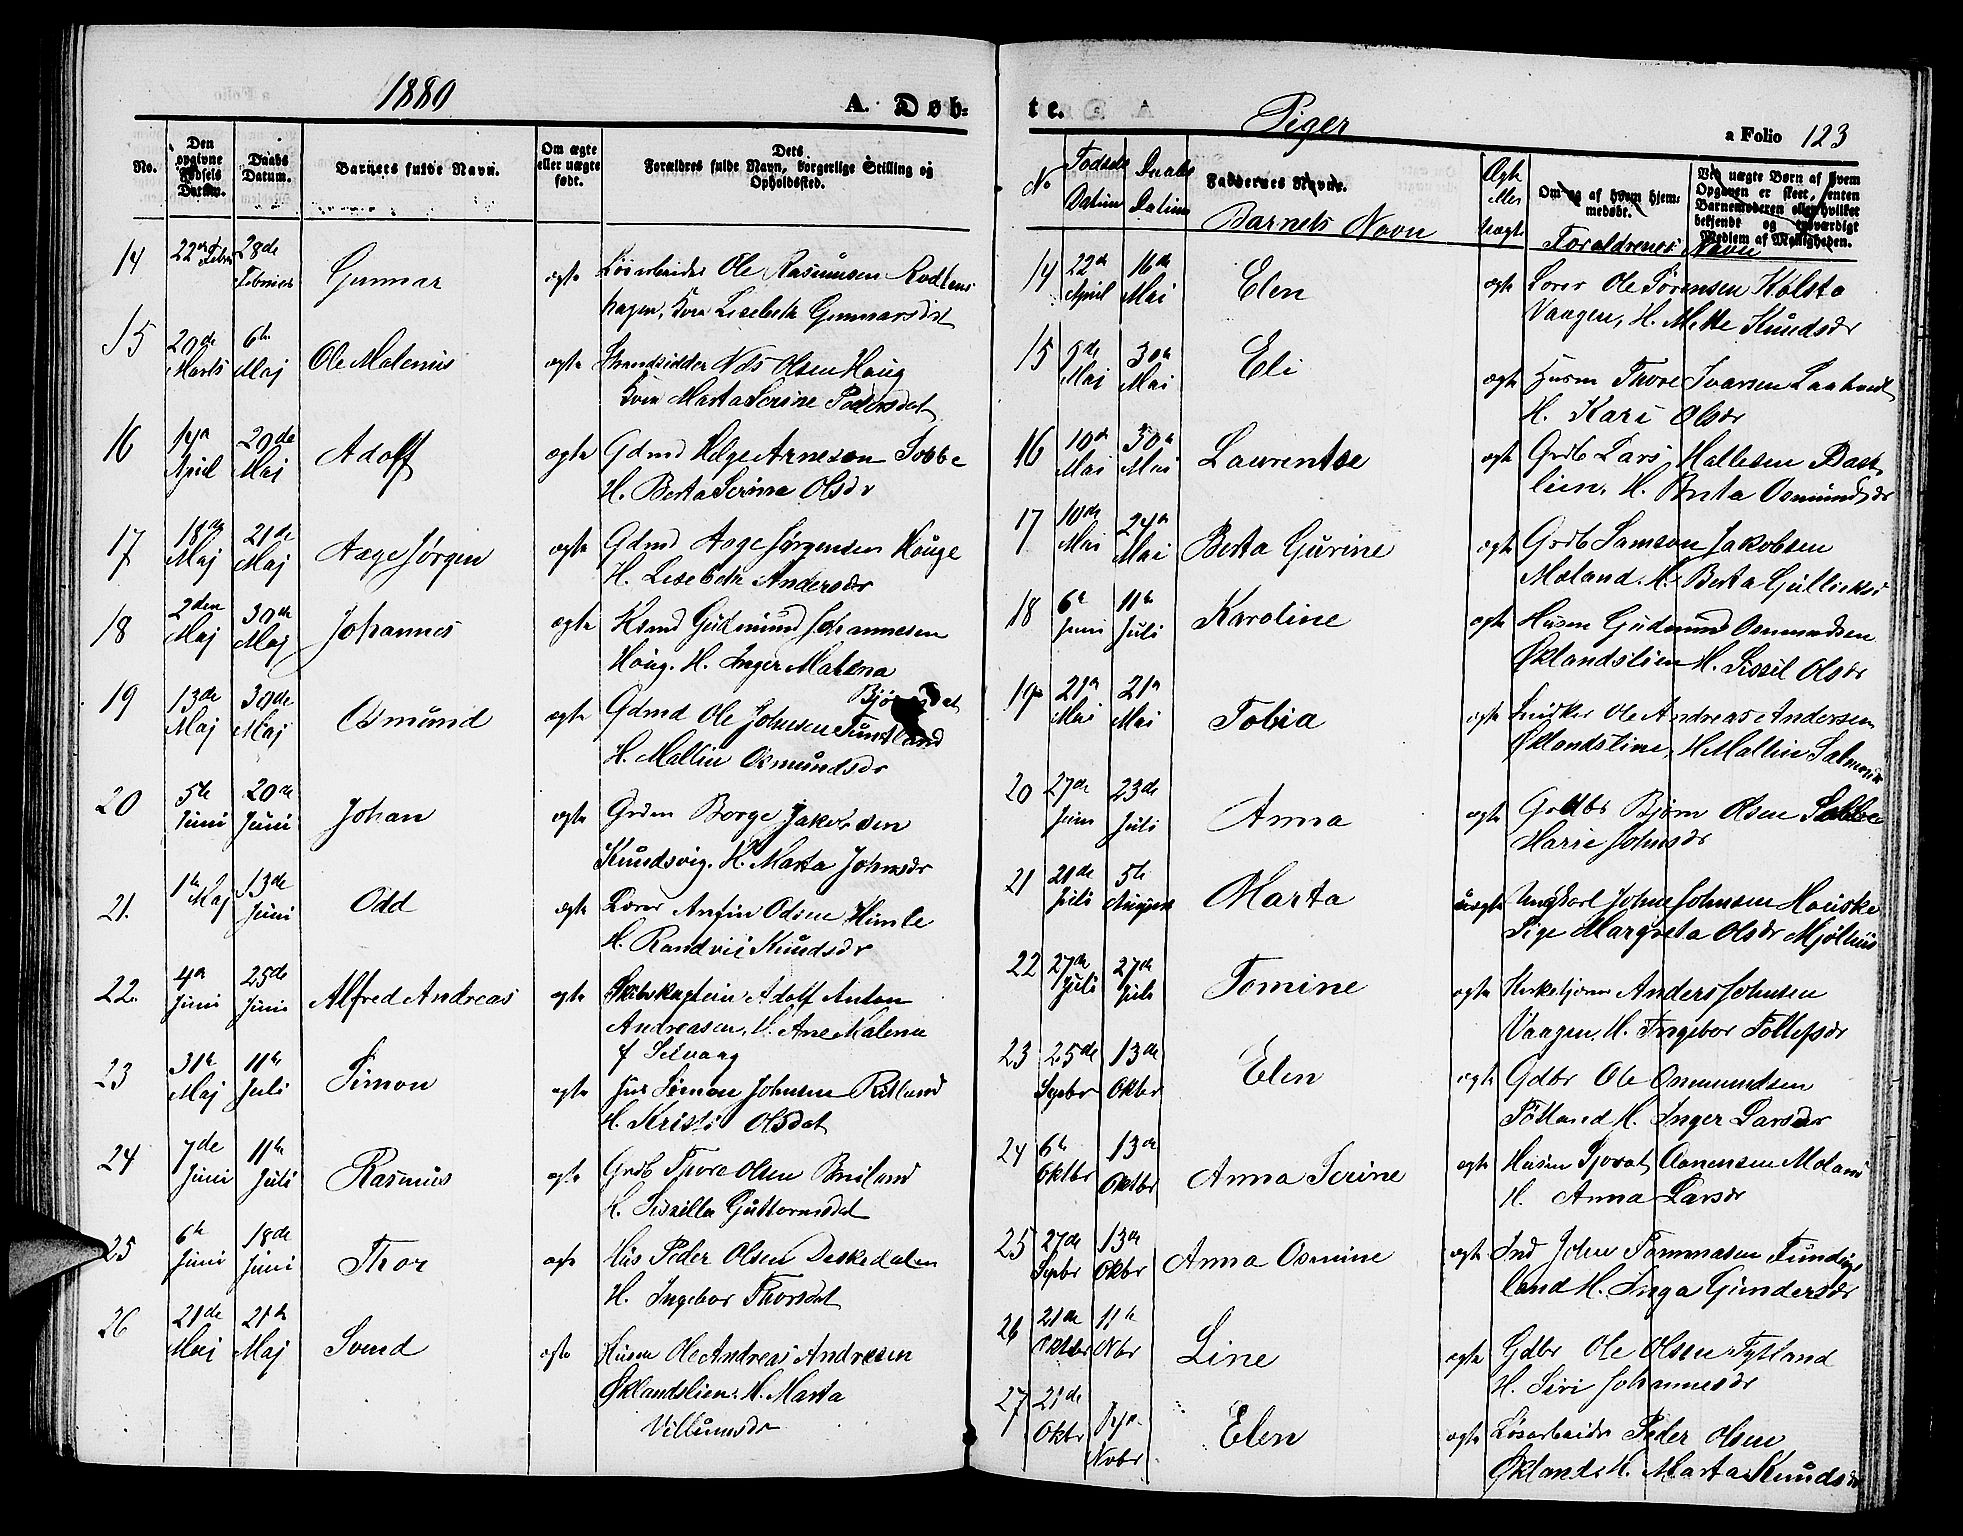 1880
A. Døb-
No.
Den opgivne Fødsels Datum.
Daabs Datum.
Barnets fulde Navn.
Om ægte eller uægte født.
Dets Forældres fulde Navn, borgerlige Stilling og Opholdssted.
14 22de Febru 28de Februar Gunnar ægte Løsarbeider Ole Rasmussen
hagen, Kone Lisebeth Gunnarsdt
15 20de Marts 6te Maj Ole Malenius ægte Strandsidder Nils Olsen Haug
Kone Marta Serine Pedersdat
16 14de April 20de Maj Adolf ægte Gdmd Helge Arnesen Sobbe
H. Berta Serina Olsdr
17 18de Maj 21de Maj Aage Jørgen ægte Gdmd Aage Jørgensen Hauge
H. Lisebeth Andersdr
18 2den Maj 30de Maj Johannes ægte Gudmund Johannesen
Haug. H. Inger Malena
19 13de Maj 30de Maj Osmund ægte Gdmd Ole Johnsen Tuntland
H. Mallin Osmundsdr
20 5te Juni 20de Juni Johan ægte Børge Jakobsen
Knudsvig. H. Marta Johnsdr
21. 1te Maj 13de Juni Odd ægte Lærer Anfin Odine Himle
H. Randvei Knudsdr
22. 4de Juni 25de Juni Alfred Andreas ægte Skibskaptein Adolf Anton
Andreasen, H. Ane Malene
f Selvaag
23 31te Maj 11te Juli Simon ægte Hus Simon Johnsen Røtland
H. Kristi Olsdat
24 7de Juni 11te Juli Rasmus ægte Grdb Thore Olsen Breiland
H. Sissilla Guttormsdat
25 6te Juni 18de Juni Thor ægte Hus Peder Olsen Deskedalen
H. Ingebor Thorsdat
26 21de Maj 21de Maj Svend ægte Husm Ole Andreas Andresen
Øklandslien. H. Marta
Villumsdr
te.
Piger
a Folio 123
No
Fødsels Datum
Daabs Datum
Faddernes Navne.
Barnets Navn
Ægte eller Uægte
Om og af hvem hjemmedøbt.
Ved uægte Børn af hvem Opgaven er skeet, enten Barnemoderen eller hvilket bekjendt og troværdigt Medlem af Menigheden.
Forældrenes Navn
14 22de April 16de Mai Elen ægte Lærer Ole Sørensen Kolstø
Vaagen, H. Mette Knudsdr
15 9de Mai 30de Mai Eli ægte Husm Thore Ivarsen
H. Kari Olsdr
16 10de Mai 30de Mai Laurentse ægte Grdb Lars Mallesen Bast
lien, H. Berta Osmundsdr
17 10de Mai 24de Mai Berta Gurine ægte Grdb Samson Jakobsen
Mæland. H. Berta Gullieksd
18 6te Juni 11te Juli Karoline ægte Husm Gudmund Osmundsen
Øklandslien H. Sissil Olsdr
19 21de Mai 21de Mai Tobia ægte Ole Andreas Andersen
Øklandsline, H Mallin Salmonsdr
20 27de Juni 23de Juli Anna ægte Grdbr Bjørn Olsen Sobbe
Marie Johnsdr
21 21de Juli 5te August Marta uægte Ungkarl John Johnsen Hauske
Pige Margreta Olsdr Mjølhus
22 27de Juli 27de Juli Tomine ægte Kirketjener Anders Johnsen
Vaagen. H. Ingebor Tollefsdr
23 25de Sepbr 13de Oktbr Elen ægte Gdbr Ole Osmundsen
Tøtland H. Inger Larsdr
24 6te Oktbr 13de Oktbr Anna Serine ægte Husm Sjovat Aanensen Moland
H. Anna Larsdr
25 27de Sepbr 13de Oktbr Anna Osmine ægte Ind John Tommasen Tundings
land H. Inga Gundersdr
26 21de Oktbr 11te Nbr Line ægte Gdbr Ole Olsen Fytland
H. Siri Johannesdr
27 21de Oktbr Novbr Elen ægte Løsarbeider Peder Olsen
Økland. H. Marta Knudsdr